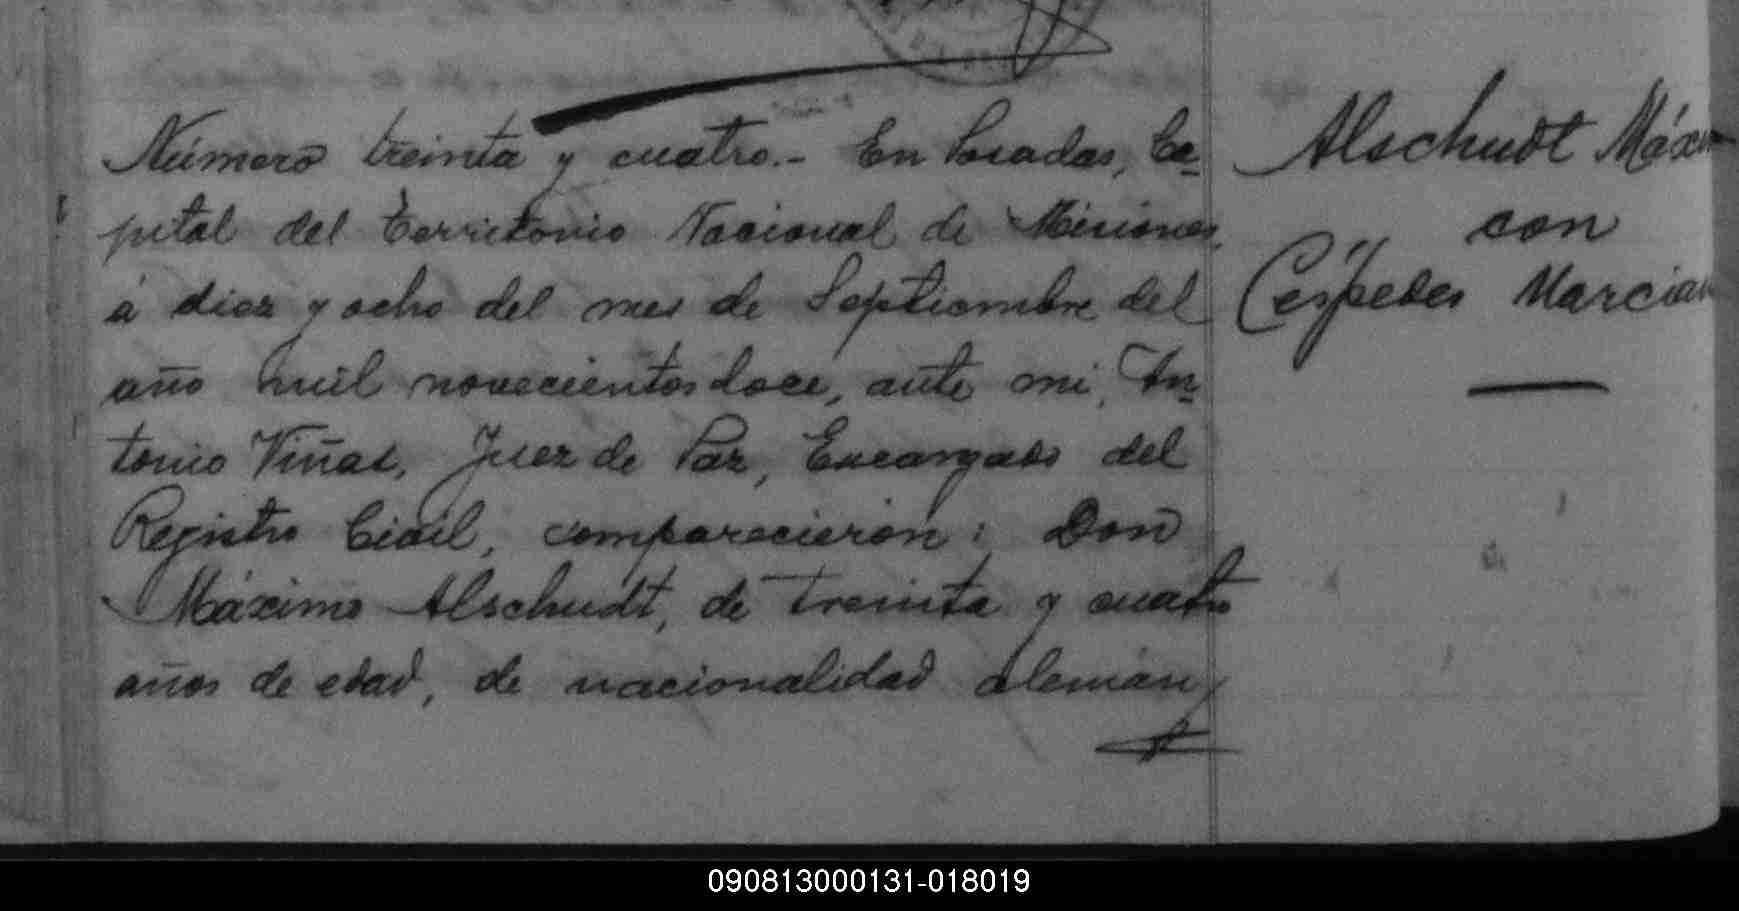 Número treinta y cuatro.- En Posadas, Ca-
pital del territorio Nacional de Misiones,
á diez y ocho del mes de Septiembre del
año mil novecientos doce, ante mi, An-
tonio Viñas, Juez de Paz, Encargado del
Registro Civil, comparecieron: Don
Máximo Alschudt, de treinta y cuatro
años de edad, de nacionalidad alemán,
Alschudt Máxim
con
Céspedes Marcian
090813000131-018019